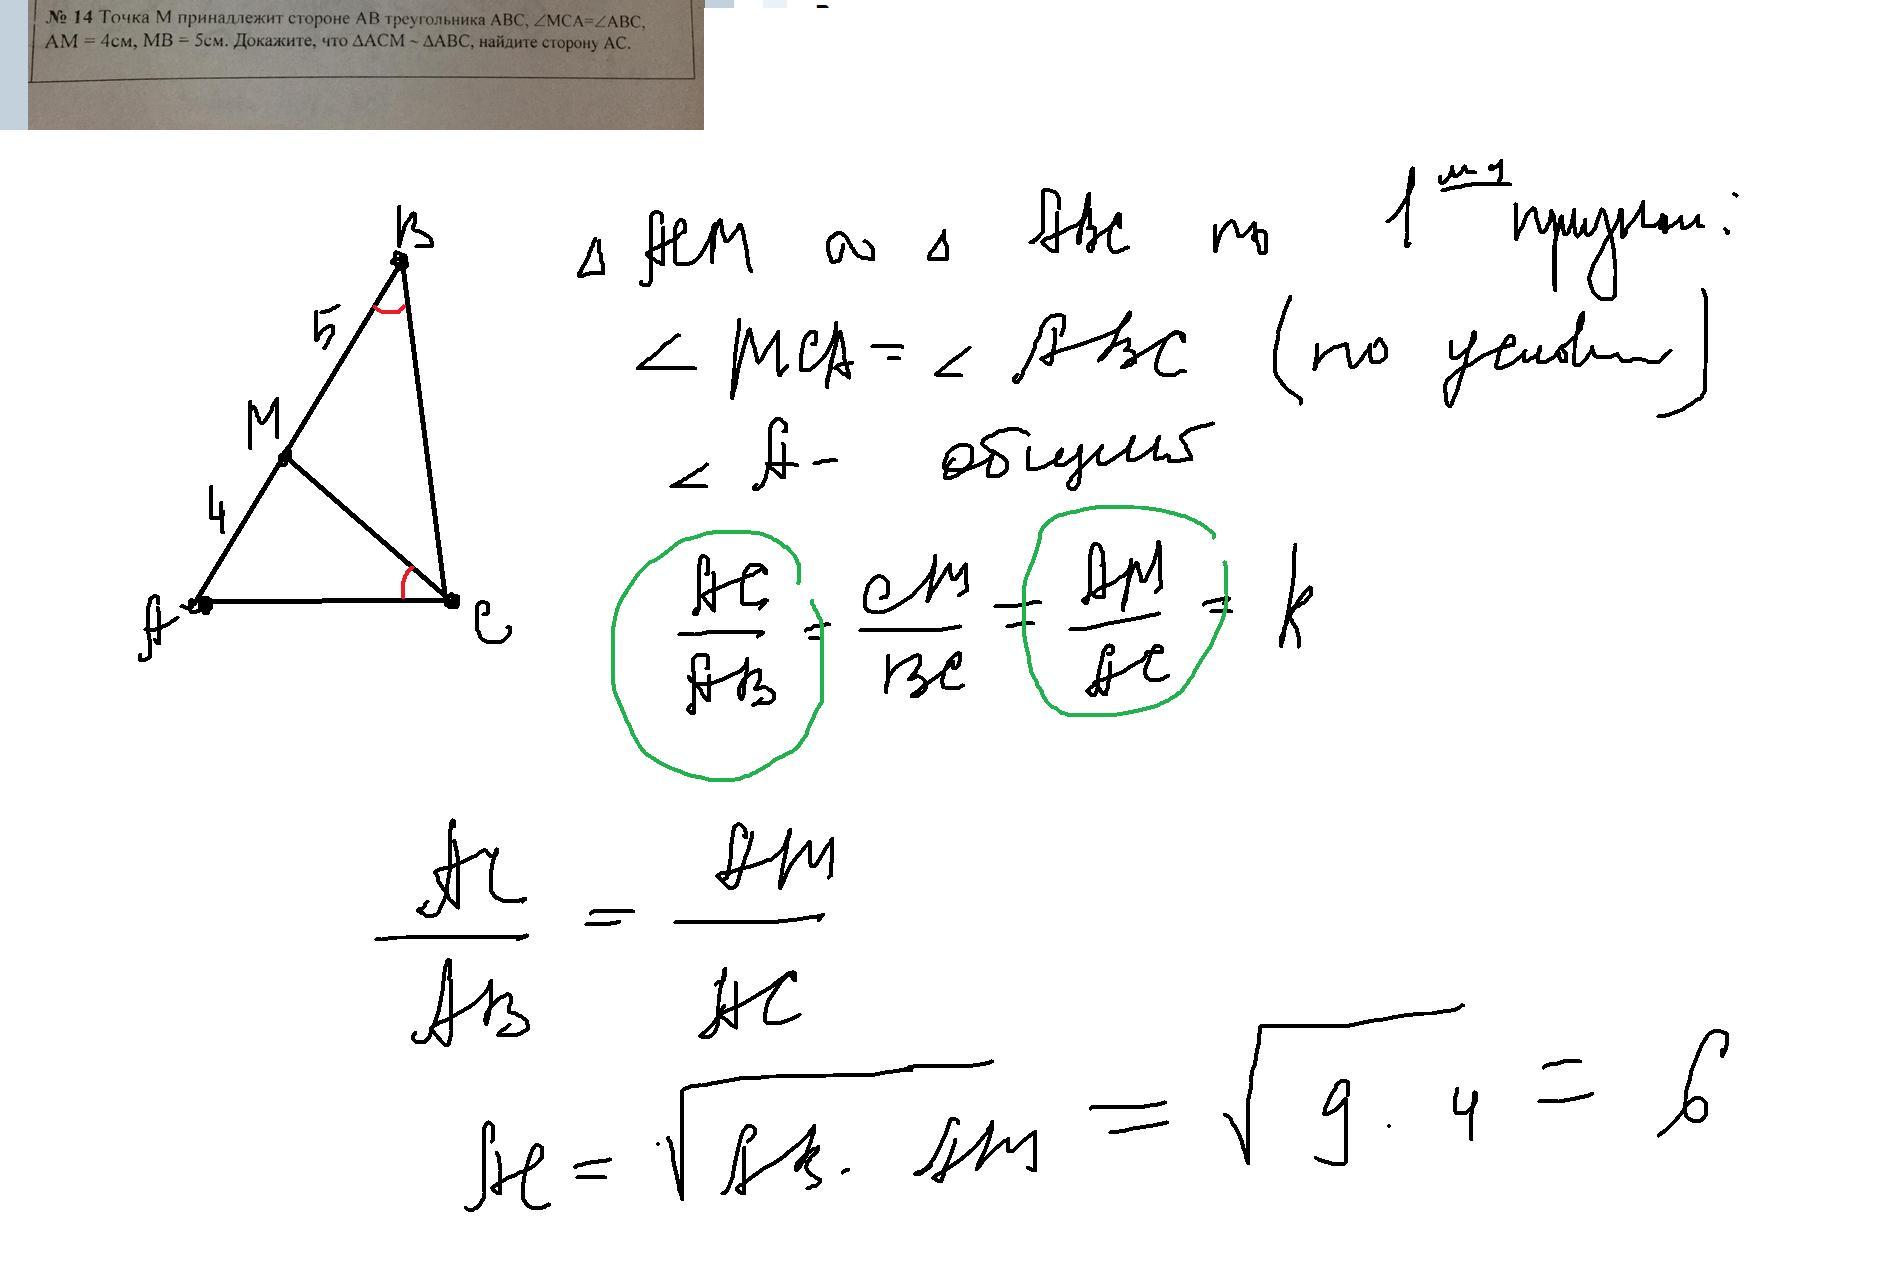 № 14 Точка М принадлежит стороне АВ треугольника АВС, ∠МСА=∠АВС,
АМ = 4см, МВ = 5см. Докажите, что ΔАСМ ~ ΔАВС, найдите сторону АС.
B
5
M
4
A
C
Δ ACM ∾ Δ ABC по 1
∠ MCA = ∠ ABC (по условию)
∠ A - общий
AC/AB = CM/BC = AM/AC = k
AC/AB = AM/AC
AC = √AB · AM = √9 · 4 = 6